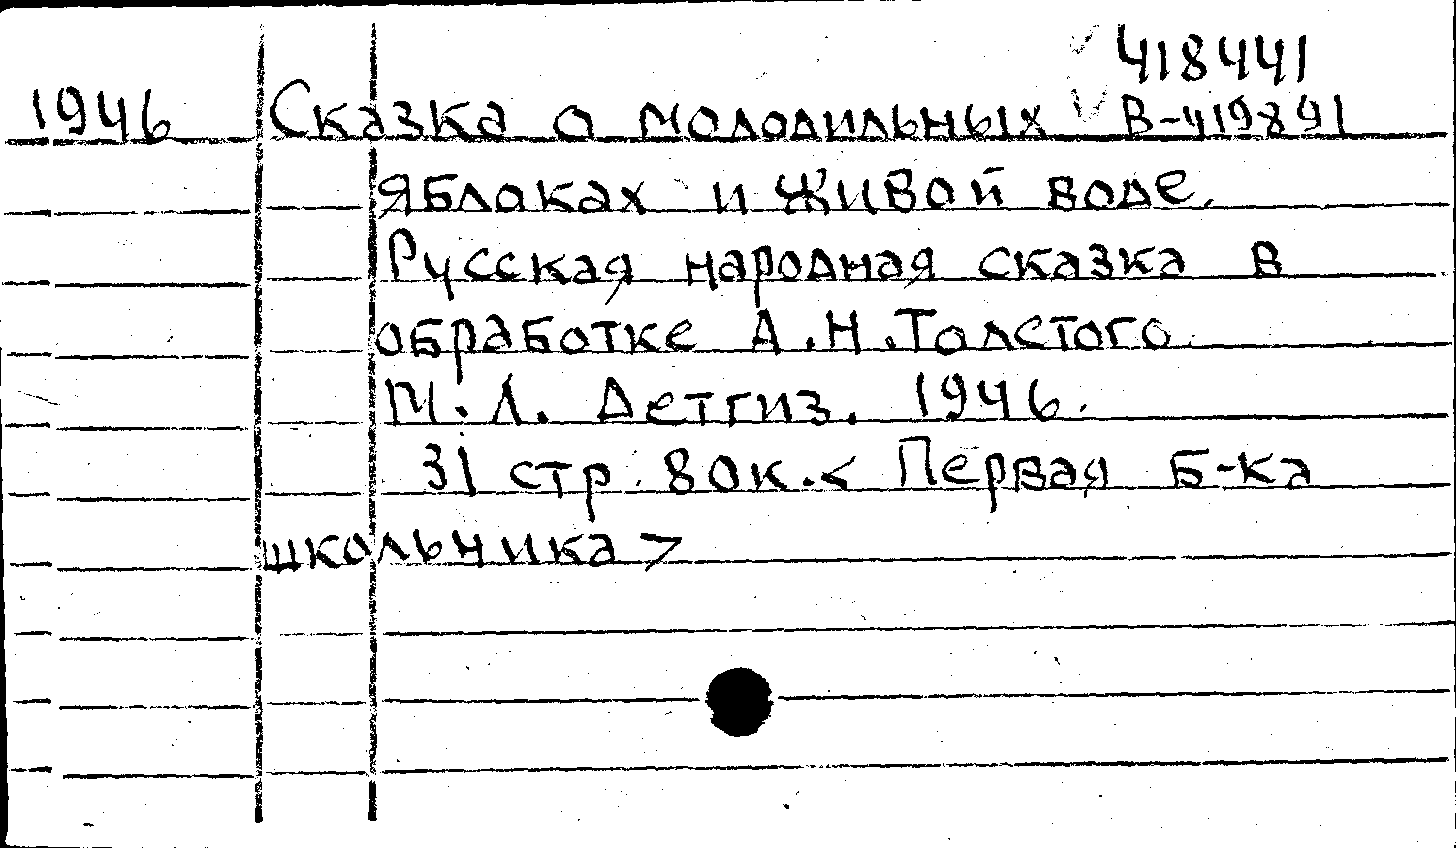 418441
1946 Сказка о молодильных В-419891
яблоках и живой воде.
Русская народная сказка в
обработке А.Н.Толстого
М.Л. Детгиз. 1946.
31 стр. 80к.< Первая б-ка
школьника >